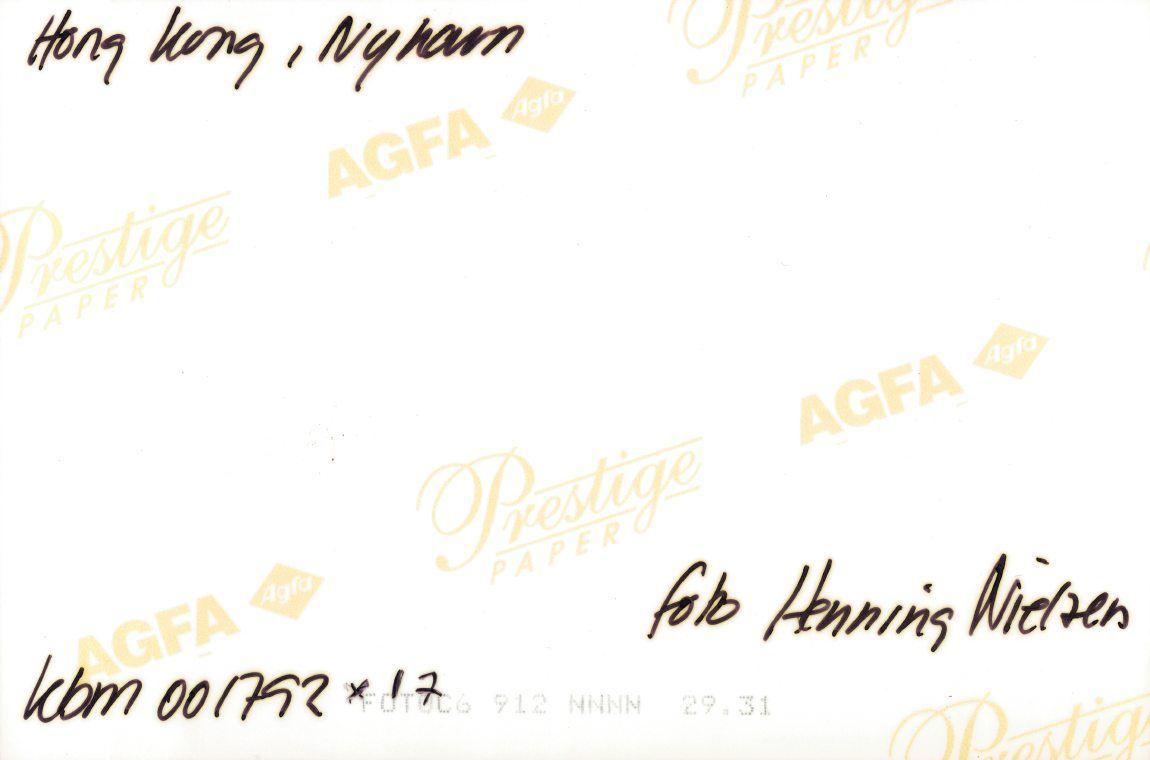 Hong Kong, Nyhavn
Prestige
PAPER
AGFA Agfa
Prestige
PAPER
AGFA Agfa
Prestige
PAPER
AGFA Agfa
foto Henning Nielsen
kbm 001792 x 17
FOTOC6 912 NNNN 29.31
Prestige